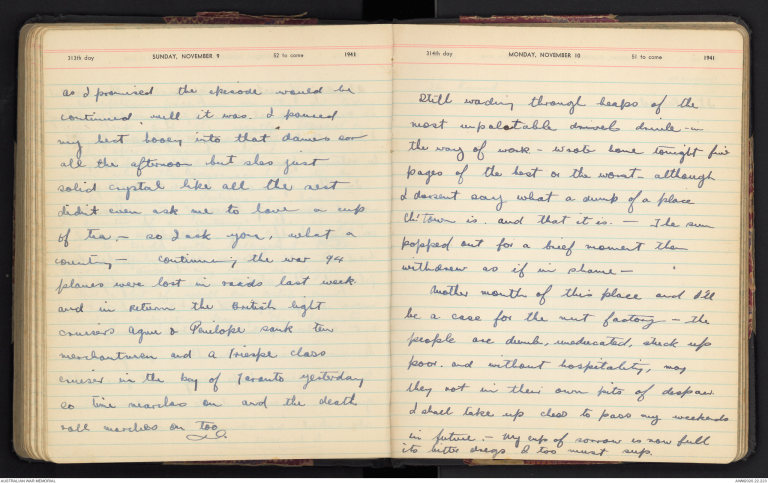 313th day SUNDAY, NOVEMBER 9 52 to come 1941
as I promised the episode would be
continued, well it was. I poured
my best booey into that dame's ear
all the afternoon but shes just
solid crystal like all the rest
didn't even ask me to have a cup
of tea, — so I ask you, what a
country — continuing the war 94
planes were lost in raids last week
and in return the British light
cruisers & Penelope sank ten
merchantmen and a class
cruiser in the bay of Taranto yesterday
so time marches on and the death
roll marches on too
314th day MONDAY, NOVEMBER 10 51 to come 1941
Still wading through heaps of the
most unpalatable drivels drivle in
the way of work — wrote home tonight five
pages of the best or the worst — although
I darsent say what a dump of a place
Ch'Town is. and that it is. — The sun
popped out for a brief moment then
withdrew as if in shame —
Nother month of this place and I'll
be a case for the nut factory — the
people are dumb, uneducated, stuck up
poor. and without hospitality, may
they rot in their own pits of despair.
I shall take up chess to pass my weekends
in future. — My cup of sorrow is now full
its bitter dregs I too must sup.
AUSTRALIAN WAR MEMORIAL